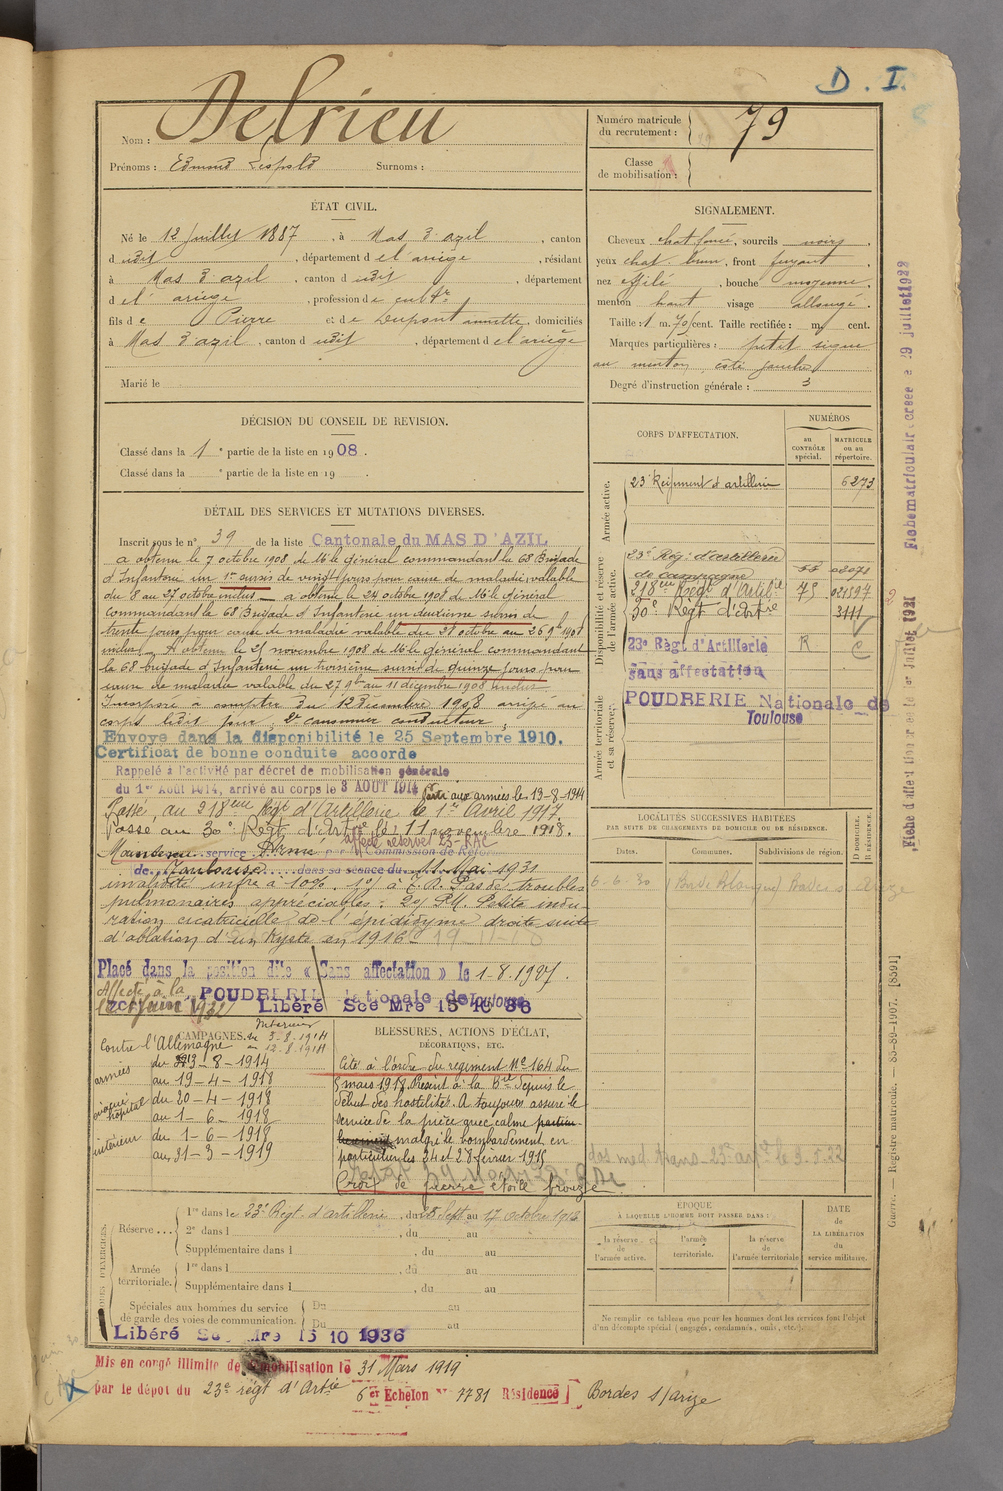 D. I.
Nom : Delrieu
Prénoms : Edmond Léopold Surnoms :
Numéro matricule du recrutement : 79
Classe de mobilisation :
ÉTAT CIVIL.
Né le 12 Juillet 1887, à Mas d'azil, canton
d udit, département de l'ariège, résidant
à Mas d'azil, canton d udit, département
d e l'ariège, profession de cultr
fils de Pierre et de Dupont annette, domiciliés
à Mas d'azil, canton d udit, département de l'ariège
Marié le
SIGNALEMENT.
Cheveux chat foncé, sourcils noirs,
yeux chat. brun, front fuyant,
nez effilé, bouche moyenne,
menton haut visage allongé.
Taille : 1 m. 70 cent. Taille rectifiée : m. cent.
Marques particulières : petit signe
au menton côté gauche
Degré d'instruction générale : 3
DÉCISION DU CONSEIL DE REVISION.
Classé dans la 1e partie de la liste en 1908.
Classé dans la e partie de la liste en 19
DÉTAIL DES SERVICES ET MUTATIONS DIVERSES.
Inscrit sous le n° 39 de la liste Cantonale du MAS D'AZIL
a obtenu le 7 octobre 1908 de Mr le général commandant la 68 Brigade
d'Infanterie un 1er sursis de vingt jours pour cause de maladie, valable
du 8 au 27 octobre inclus _ a obtenu le 24 octobre 1908 de Mr le général
commandant la 68 Brigade d'Infanterie un deuxième sursis de
trente jours pour cause de maladie valable du 28 octobre au 26 9bre 1908
inclus _ A obtenu le 25 novembre 1908 de Mr le général commandant
la 68 brigade d'Infanterie un troisième sursis de quinze jours pour
cause de maladie valable du 27 9bre au 11 décembre 1908 inclus
Incorporé à compter du 12 décembre 1908 arrivé au
corps ledit jour, 2e canonnier conducteur,
Envoyé dans la disponibilité le 25 Septembre 1910.
Certificat de bonne conduite accordé
Rappelé à l'activité par décret de mobilisation générale
du 1er Août 1914, arrivé au corps le 3 AOUT 1914 Parti aux armées le 13-8-1914
Passé au 218eme Régt d'Artillerie le 1er Avril 1917.
Passé au 30e Régt d'Artie le 11 novembre 1918.
affecté réserve 23 RAC
Maintenu service Armé par Commission de Réforme
de Toulouse dans sa séance du Mai 1931
invalidité infre à 10%. 1°/ à T. B. Pas de troubles
pulmonaires appréciables. 2°/ P.U. Petite indu-
ration cicatricielle de l'épididyme droite suite
d'ablation d'un Kyste en 1916 _
Placé dans la position dite « Sans affectation » le 1-8-1927.
Affecté à la POUDRERIE Nationale de Toulouse
Libéré Sce Mre 15 10 36
CORPS D'AFFECTATION.
NUMÉROS
au CONTRÔLE spécial.
MATRICULE ou au répertoire.
Armée active.
23e Régiment d'artillerie 6273
Disponibilité et réserve de l'armée active.
23e Rég. d'artillerie
de campagne
218eme Régt d'Artie 75 021597
30e Régt d'Artie 3111
23e Régt d'Artillerie R
sans affectation
Armée territoriale et sa réserve.
POUDRERIE Nationale de
Toulouse
LOCALITÉS SUCCESSIVES HABITÉES
PAR SUITE DE CHANGEMENTS DE DOMICILE OU DE RÉSIDENCE.
D DOMICILE.
R RÉSIDENCE.
Dates. Communes. Subdivisions de région.
6-6-30
CAMPAGNES.
Contre l'Allemagne
Intérieur
du 3-8-1914
au 12-8-1914
armées du 13-8-1914
au 19-4-1918
évacué hôpital du 20-4-1918
au 1-6-1918
intérieur du 1-6-1918
au 31-3-1919
BLESSURES, ACTIONS D'ÉCLAT,
DÉCORATIONS, ETC.
Cité à l'ordre du régiment No 164 du
5 mars 1918. Présent à la Bie depuis le
début des hostilités. A toujours assuré le
service de la pièce avec calme
malgré le bombardement en
particulier les 24 et 28 février 1918
Croix de guerre étoile bronze
Réserve...
1re dans le 23e Régt. d'artillerie, du 25 Sept. au 17 octobre 1912
2e dans l , du au
Supplémentaire dans l , du au
Armée territoriale.
1re dans l , du au
Supplémentaire dans l , du au
Spéciales aux hommes du service de garde des voies de communication.
Du au
Du au
Libéré Sce Mre 15 10 1936
ÉPOQUE
À LAQUELLE L'HOMME DOIT PASSER DANS :
la réserve de l'armée active.
l'armée territoriale.
la réserve de l'armée territoriale
DATE de LA LIBÉRATION du service militaire.
Ne remplir ce tableau que pour les hommes dont les services font l'objet
d'un décompte spécial (engagés, condamnés, omis, etc.).
Mis en congé illimité de démobilisation le 31 Mars 1919
par le dépôt du 23e régt d'Artie 6er Echelon No 7781 Résidence Bordes s/arize
Fiche matriculaire créée le 19 juillet 1922
Guerre. — Registre matricule. — 85-89-1907. [8591]